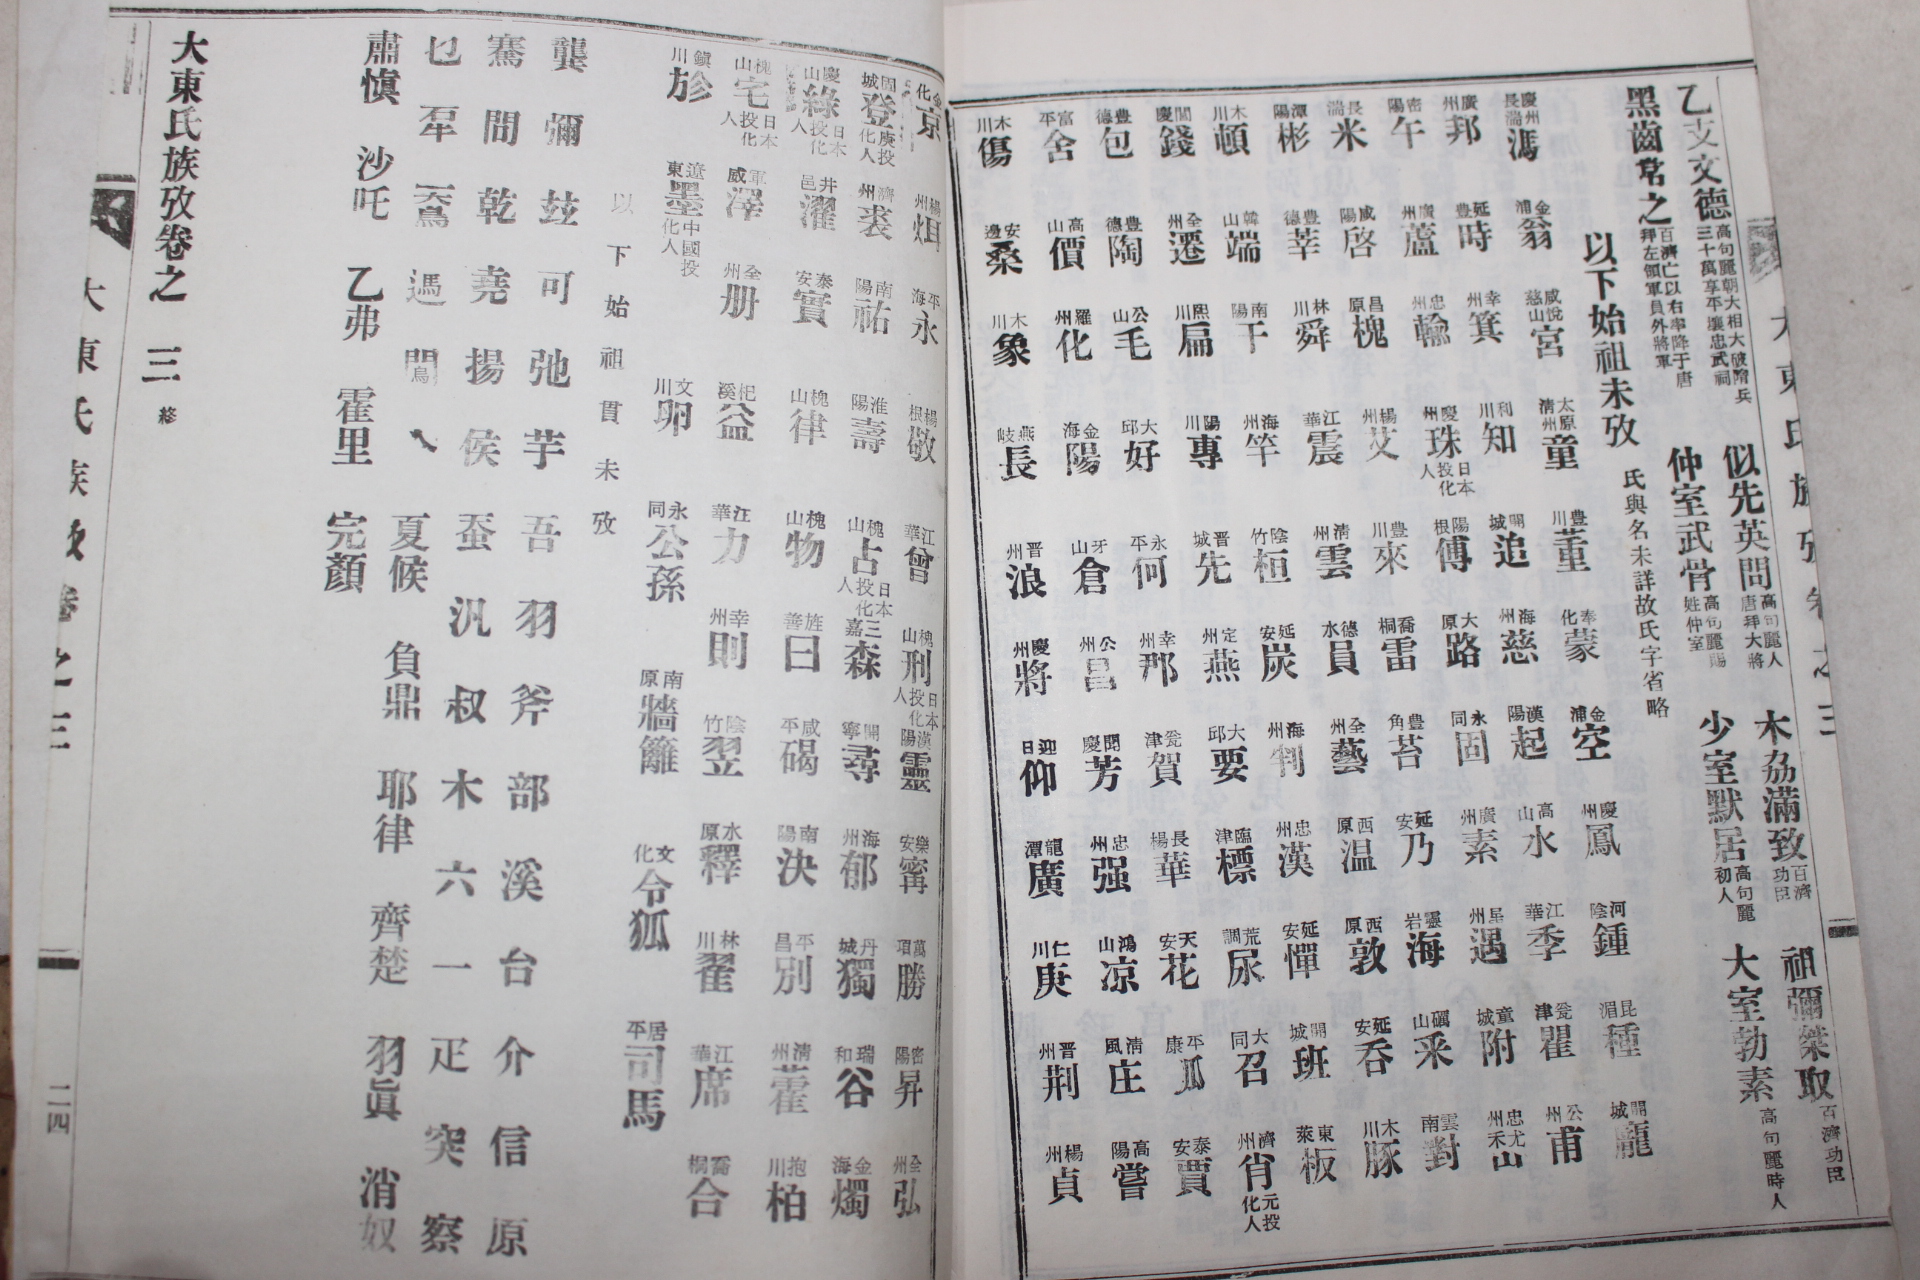 乙支文德 高句麗朝大相大破隋兵三十萬享平壤忠武祠 似先英問 高句麗人唐拜大將 木刕滿致 百濟功臣 祖彌傑取 百濟功臣
黑齒常之 百濟亡以右率降于唐拜左領軍員外將軍 仲室武骨 高句麗賜姓仲室 少室默居 高句麗初人 大室勃素 高句麗時人
以下始祖未攷 氏與名未詳故氏字省略
慶州長湍馮 金浦翁 咸悅慈山宮 太原清州童 豊川董 奉化蒙 金浦空 慶州鳳 河陰鍾 昆湄種 開城龐
廣州邦 延豊時 幸州箕 利川知 開城追 海州慈 漢陽起 高山水 江華季 瓮津瞿 公州甫
密陽午 廣州蘆 忠州輸 慶州珠 日本投化人 陽根傅 大原路 永同固 廣州素 星州遇 童城附
長湍米 咸陽啓 昌原槐 楊州艾 豊川來 喬桐雷 豊角苔 延安乃 靈岩海 礪山釆 雲南對
潭陽彬 豊德莘 林川舜 江華震 清州雲 德水員 全州藝 西原温 西原敦 延安呑 木川豚
木川頓 韓山端 南陽干 海州竿 陰竹桓 延安炭 海州判 忠州漢 延安憚 開城班 東萊板
聞慶錢 全州遷 熙川扁 陽川專 晋城先 定州燕 大邱要 臨津標 荒調尿 大同召 濟州肖 元投化人
豊德包 豊德陶 公山毛 大邱好 永平何 幸州那 瓮津賀 長楊華 天安花 平康瓜 泰安賈
富平舍 高山價 羅州化 金海陽 牙山倉 公州昌 聞慶芳 忠州强 鴻山凉 清風庄 高陽嘗
木川傷 安邊桑 木川象 燕岐長 晋州浪 慶州將 迎日仰 龍潭廣 仁川庚 晋州荆 楊州貞
金化京 楊州 平海永 楊根敬 江華曾 槐山刑 日本投化人 漢陽靈 樂安甯 萬項勝 密陽昇 全州弘
固城登 庚投化人 濟州裘 南陽祐 淮陽壽 槐山占 日本投化人 三嘉森 開寧尋 海州郁 丹城獨 瑞和谷 金海燭
慶山綠 日本投化人 井邑濯 泰安實 槐山律 槐山物 旌善曰 咸平碣 南陽決 平昌別 清州藿 抱川柏
槐山宅 日本投化人 軍威澤 全州册 杞溪益 江華力 幸州則 陰竹翌 水原釋 林川翟 江華席 喬桐合
鎭川㫈 遼東墨 中國投化人 文川卵 永同公孫 南原牆籬 文化令狐 居平司馬
以下始祖貫未攷
龔 彌 玆 可 弛 芋 吾 羽 斧 部 溪 台 介 信 原
騫 問 乾 堯 揚 侯 蚕 汎 叔 木 六 一 疋 突 察
乜 馮 夏候 負鼎 耶律 齊楚 羽眞 消奴
肅愼 沙吒 乙弗 霍里 完顏
大東氏族攷卷之三 終
大東氏族攷卷之三
二四